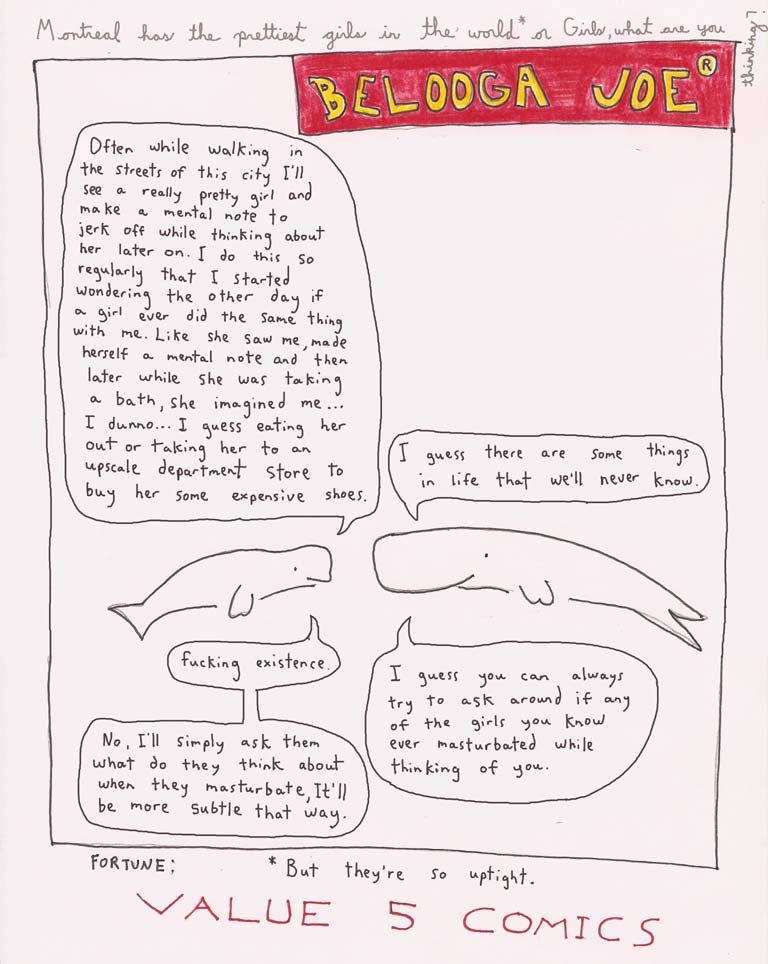 Montreal has the prettiest girls in the world* or Girls, what are you
thinking?
BELOOGA JOE®
Often while walking in
the streets of this city I'll
see a really pretty girl and
make a mental note to
jerk off while thinking about
her later on. I do this so
regularly that I started
wondering the other day if
a girl ever did the same thing
with me. Like she saw me, made
herself a mental note and then
later while she was taking
a bath, she imagined me...
I dunno... I guess eating her
out or taking her to an
upscale department store to
buy her some expensive shoes.
I guess there are some things
in life that we'll never know.
fucking existence.
I guess you can always
try to ask around if any
of the girls you know
ever masturbated while
thinking of you.
No, I'll simply ask them
what do they think about
when they masturbate, It'll
be more subtle that way.
FORTUNE; * But they're so uptight.
VALUE 5 COMICS